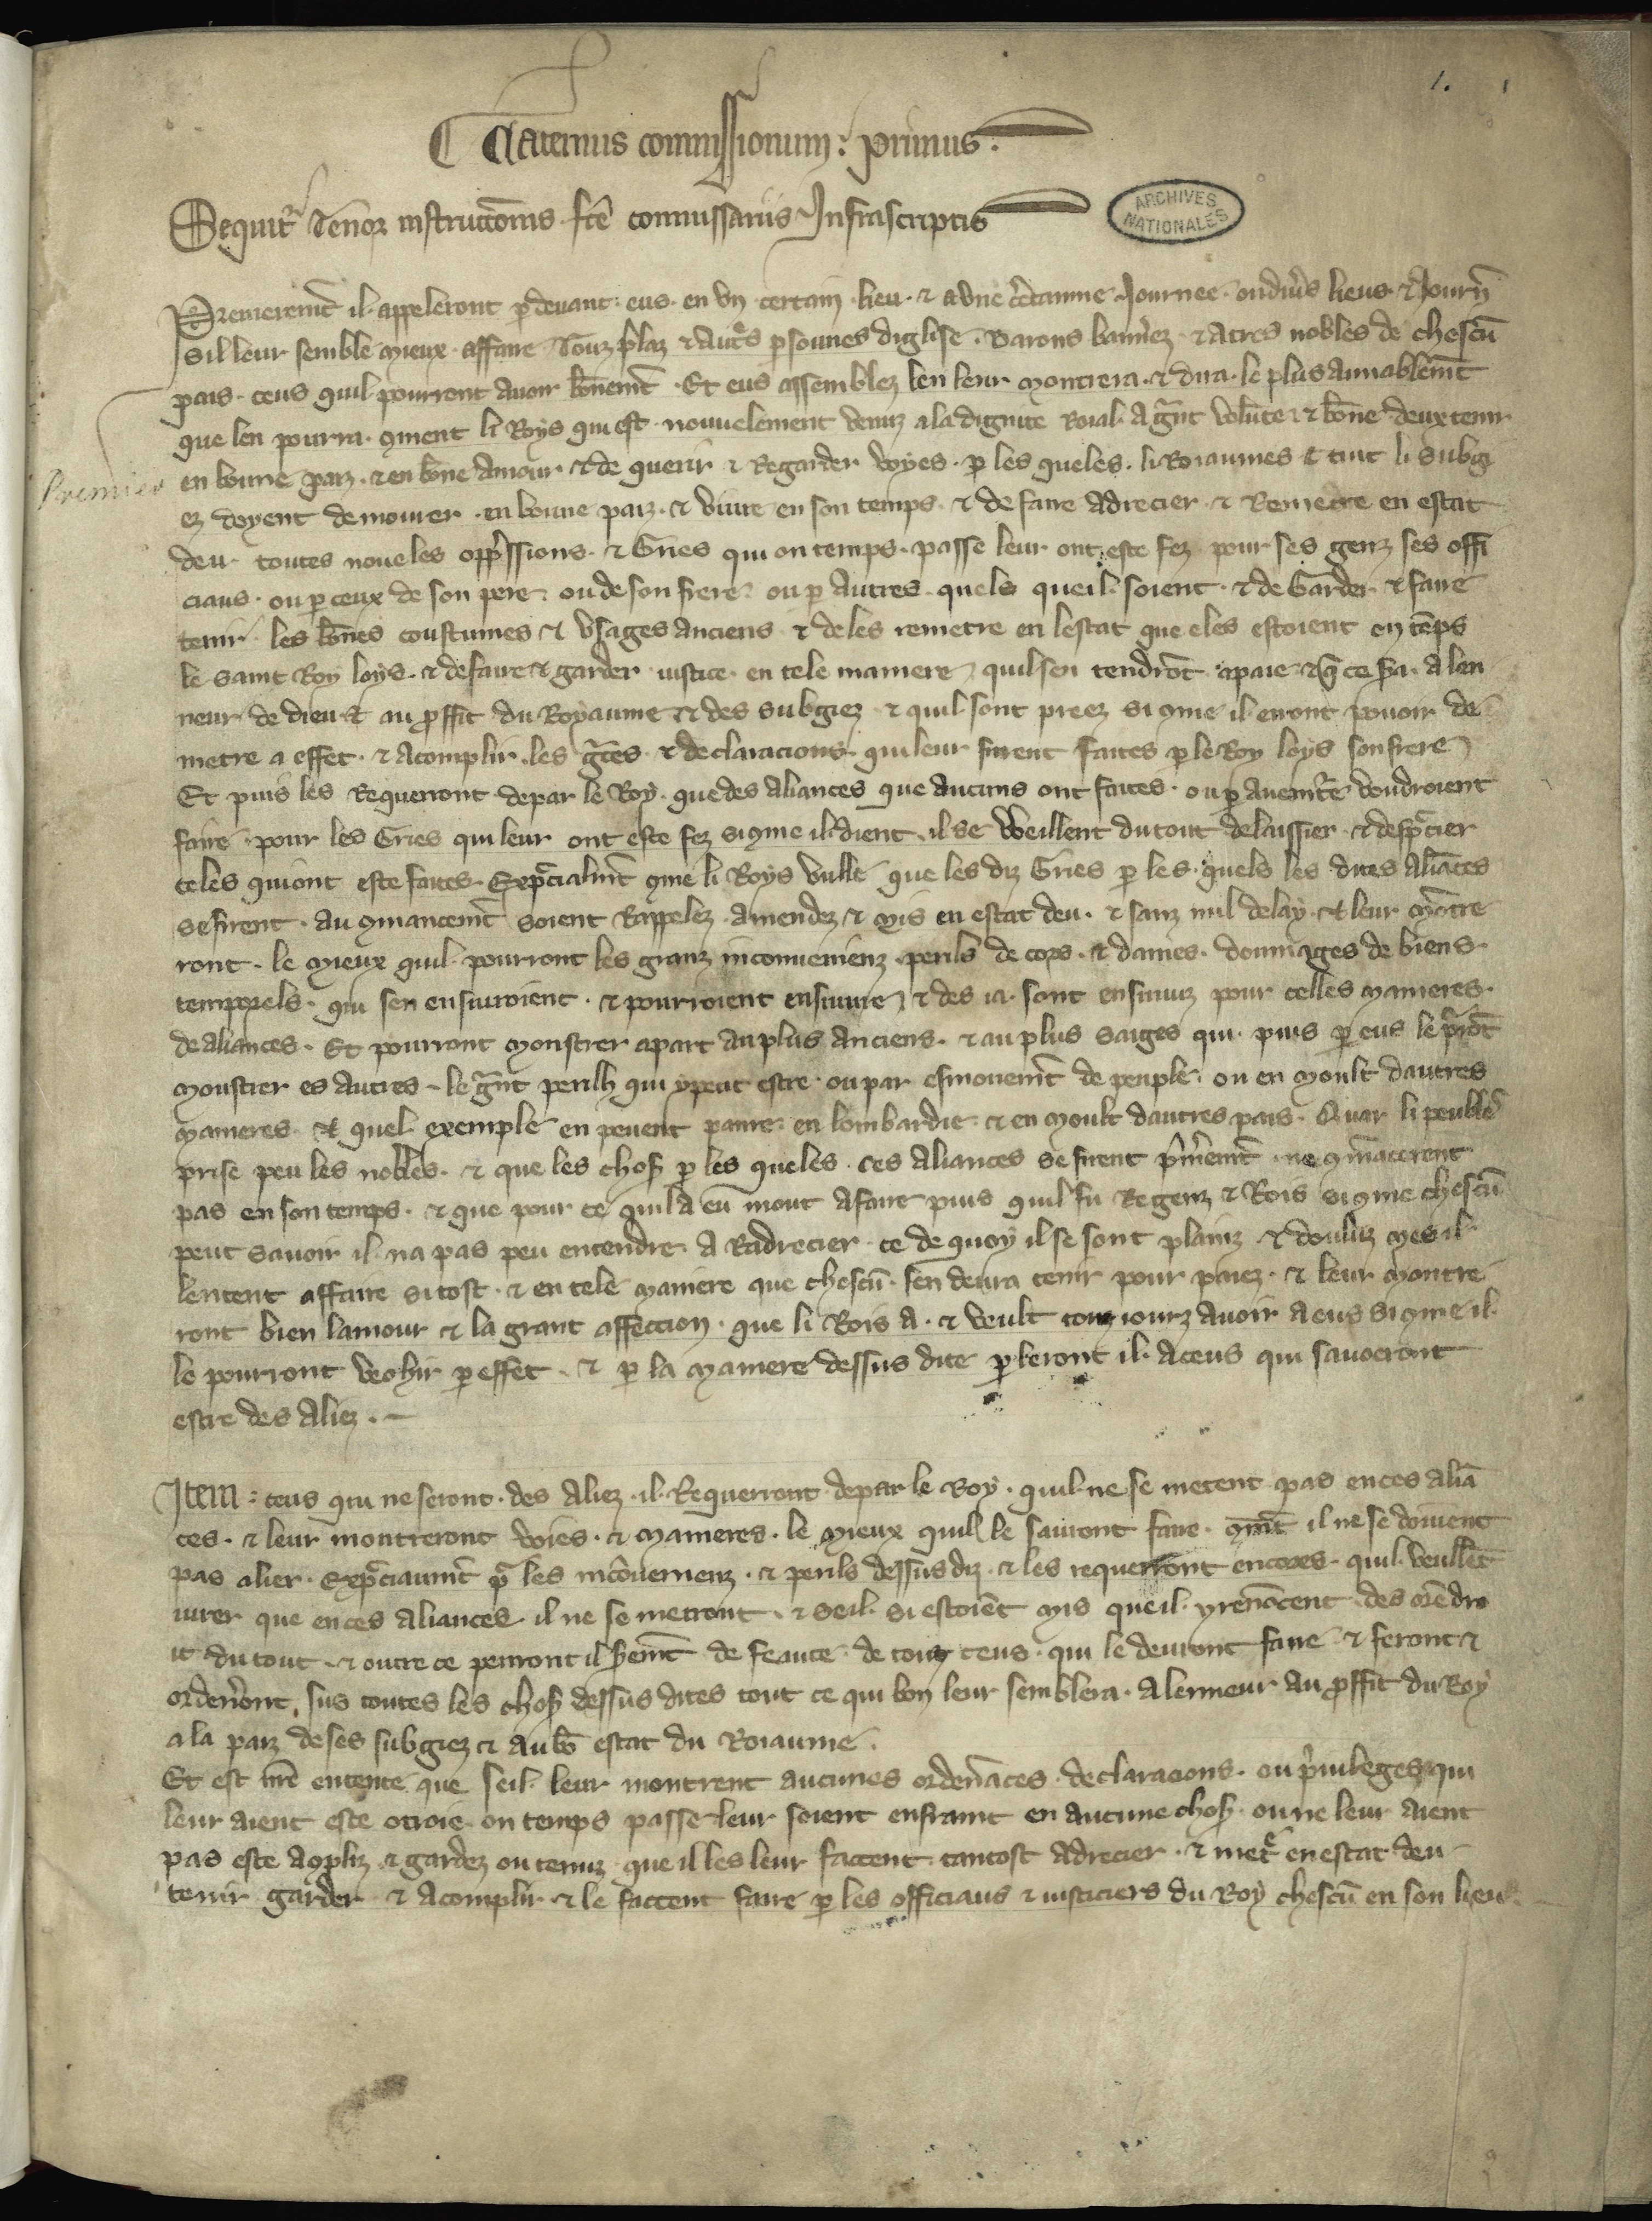 1.
Qaternus commissionum : primus :
Sequitr Tenor instruccionis fce commissariis Infrascriptis
ARCHIVES NATIONALES
Premieremt il appeleront p devant eus en un certain lieu & a une ctainne Journee ou divs lieus & Journ
sil leur semble mieux affaire Touz plaz & autrs psonnes diglise . Barons bannez & atres nobles de chescu
pais ceus quil pourront avoir bonemt . Et eus assemblez len leur montrera & dira le plus amiablemt
que len pourra qment li Roys qui est nouvelement venuz a la dignite Roial a grnt volute & bone deux tenir
Premier
en bonne paiz & en bone amour & de querir & Regarder voyes p les queles li Roiaumes & tuit li subgi
ez doyent demourer en bonne paiz & vivre en son temps & de faire adrecier & Remetre en estat
deu toutes noveles oppssions & Gries qui on temps passe leur ont este fez pour ses genz ses offi
ciaus ou p ceux de son pere ou de son frere ou p autres quels que il soient & de Garder & faire
tenir les bones coustumes & usages anciens & de les remetre en lestat que eles estoient en temps
le saint Roy loys & de faire & garder justice en tele maniere quil sen tendrot apaie & q ce sra a len
neur de dieu & au pffit du Royaume & des subgiez & quil sont preez si qme il en ont pouoir de
metre a effet & acomplir les grces & declaracions qui leur furent faites p le Roy loys son frere
Et puis les Requerront de par le Roy que des aliances que aucuns ont faites ou p avenre voudroient
faire pour les Gries qui leur ont este fez si qme il dient il se veillent du tout delaissier & despcier
celes qui ont este faites Expcialmt qme li Roys vulle que les diz Gries p les quels les dites aliaces
se firent au qmancemt soient Rappelez amendez & mis en estat deu & sanz nul delay & leur motre
ront le mieux quil pourront les granz inconvenienz perils de cors & dames . dommages de biens
temporels qui sen ensuivroient & pourroient ensuivre & des ia sont ensuiuz pour celles manieres
de aliances . Et pourront monstrer apart au plus anciens & au plus saiges qui puis p eus le prot
monstrer es autres le grnt perilh qui y peut estre ou par esmovemt de peuple ou en moult dautres
manieres & quel exemple en pevent panre en lombardie & en moult dautres pais . Quar li peuble
prise peu les nobles & que les chos p les queles ces aliances se firent pmieremt ne qmacerent
pas en son temps & que pour ce quil a eu mout a faire puis quil fu Regenz & Rois si qme chescu
peut savoir il na pas peu entendre a Radrecier ce de quoy il se sont plainz & douluz mes il
lentent affaire si tost & en tele maniere que chescu sen devra tenir pour paiez & leur montre
ront bien lamour & la grant affeccion que li Rois a & veult touz jourz avoir a eus si qme il
le pourront veohir p effet & p la maniere dessus dite pleront il a ceus qui savoeront
estre des aliez .
Item : ceus qui ne seront des aliez il Requerront de par le Roy quil ne se metent pas en ces alia
ces & leur montreront voies & manieres le mieux quil le sauront faire qmt il ne se doivent
pas alier Expciaumt pr les incovenienz & perils dessus diz & les requerront encores quil veullet
jurer que en ces aliances il ne se metront & seil si estoiet mis que il y renocent des orendro
it du tout & outre ce penront il sremt de feaute de touz ceus qui le devront faire & feront &
ordenront sus toutes les chos dessus dites tout ce qui bon leur semblera a lenneur au pffit du Roy
a la paiz de ses subgiez & au bo estat du Roiaume .
Et est nre entente que seil leur montrent aucunes ordenaces declaracions ou privileges qui
leur aient este otroie on temps passe leur soient enfraint en aucune chos ou ne leur aient
pas este aqpliz & gardez ou tenuz que il les leur facent tantost adrecier & metr en estat deu
tenir garder & acomplir & le facent faire p les officiaus & justiciers du Roy chescu en son lieu